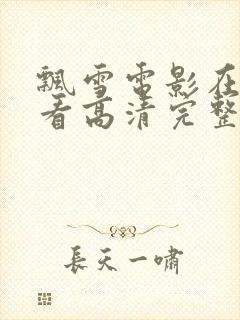 飘雪电影在
看高清完整
長天一嘯